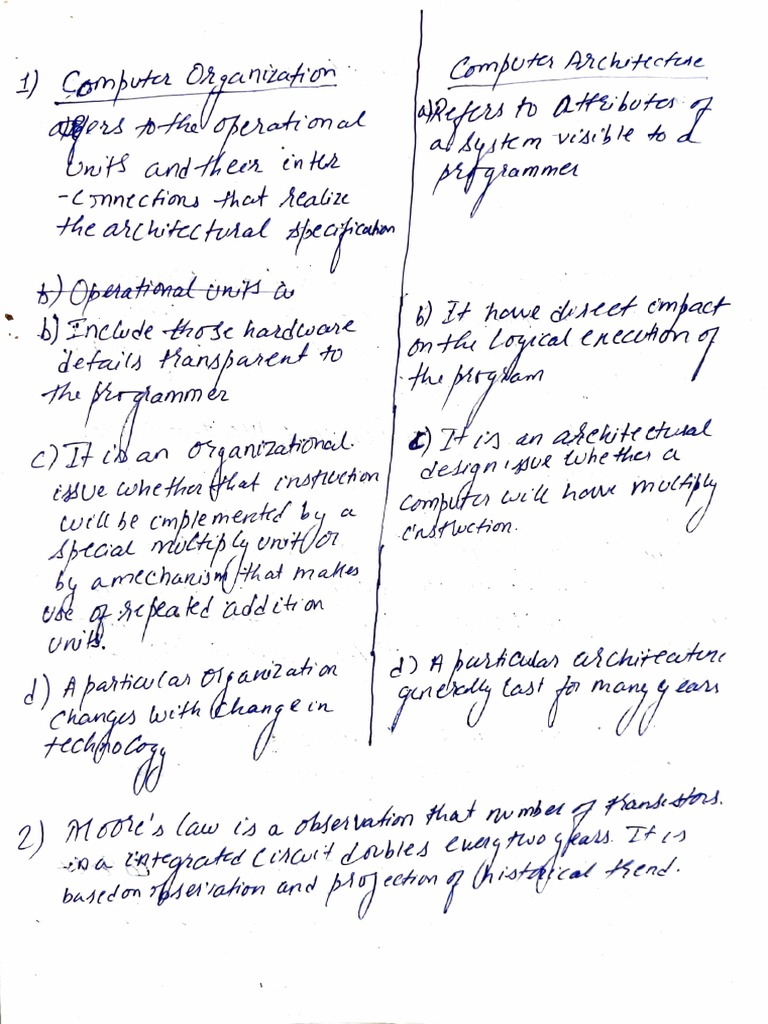 1) Computer Organization
a) Refers to the operational
units and their inter
-connections that realize
the architectural specification
b) Operational units a
b) Include those hardware
details transparent to
the programmer
c) It is an organizational
issue whether that instruction
will be implemented by a
special multiply unit or
by a mechanism that makes
use of repeated addition
units.
d) A particular organization
changes with change in
technology
Computer Architecture
a) Refers to Attributes of
a system visible to a
programmer
b) It have direct impact
on the logical execution of
the program
c) It is an architectural
design issue whether a
computer will have multiply
instruction.
d) A particular architecture
generally last for many years
2) Moore's law is a observation that number of transistors.
in a integrated circuit doubles every two years. It is
based on observation and projection of historical trend.